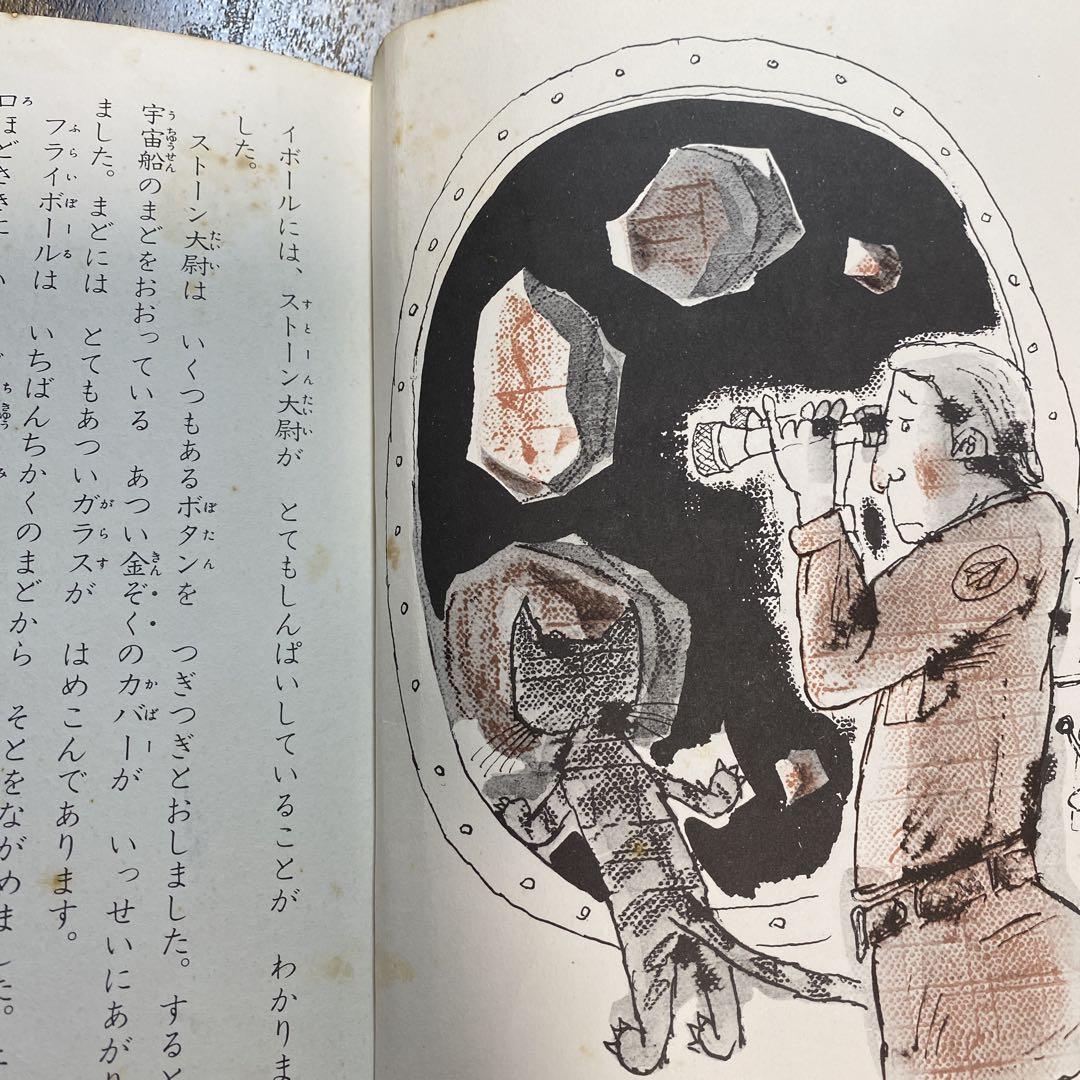 ィボールには、ストーン大尉が　とてもしんぱいしていることが　わかりま
した。
ストーン大尉は　いくつもあるボタンを　つぎつぎとおしました。すると
宇宙船のまどをおおっている　あつい金ぞくのカバーが　いっせいにあがり
ました。まどには　とてもあついガラスが　はめこんであります。
フライボールは　いちばんちかくのまどから　そとをながめました。
ロほどさきに